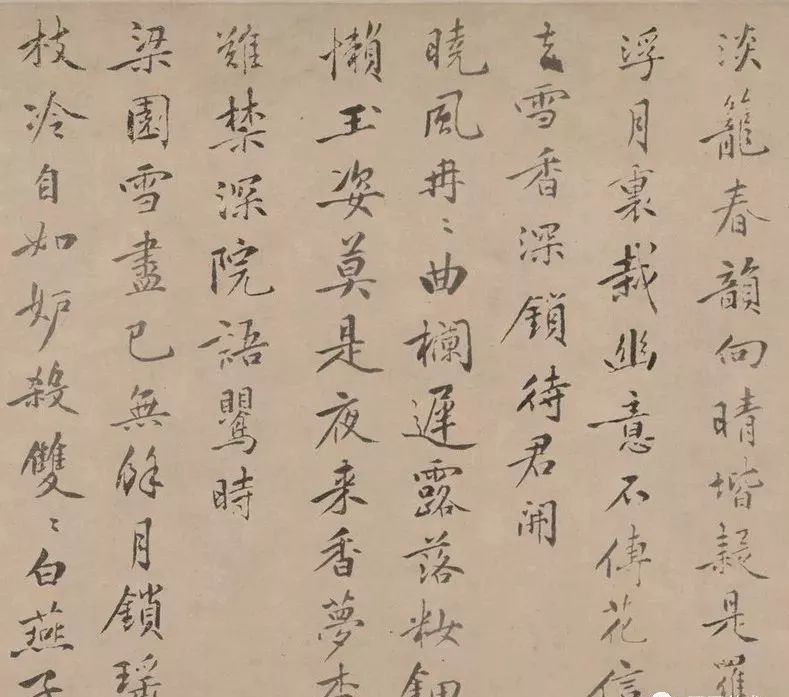 淡籠春韻向晴堦疑是羅
浮月裏栽幽意不傳花信
去雪香深鎖待君開
曉風冉〻曲欄遲露落妝鈿
懶玉姿莫是夜来香夢杳
難禁深院語鸎時
梁園雪盡已無餘月鎖瑶
枝冷自如妒殺雙〻白燕子